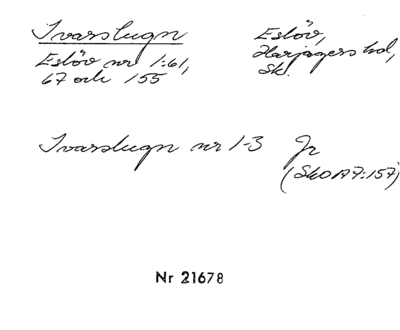 Ivarslugn
Eslöv nr 1:61,
67 och 155
Eslöv,
Harjagers hd,
Sk.
Ivarslugn nr 1-3 Jr
(SkOA 7:157)
Nr 21678